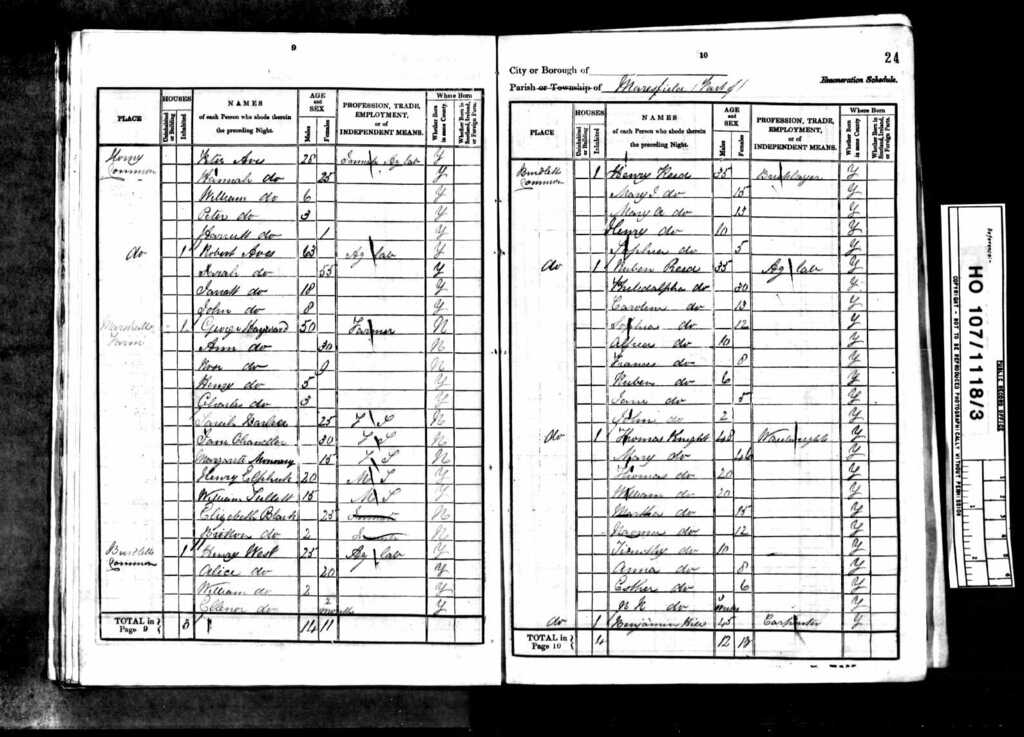 9
PLACE
HOUSES
Uninhabited or Building
Inhabited
NAMES
of each Person who abode therein
the preceding Night.
AGE and SEX
Males
Females
PROFESSION, TRADE, EMPLOYMENT, or of INDEPENDENT MEANS.
Where Born
Whether Born in same County
Whether Born in Scotland, Ireland, or Foreign Parts.
Common Peter Aves 28 Ag lab Y
Hannah do 25 Y
William do 6 Y
Peter do 3 Y
Harriett do 1 Y
do 1 Robert Aves 63 Ag lab Y
Sarah do 55 Y
do 18 Y
John do 8 Y
Farm 1 George Hayward 50 Farmer N
Ann do 30 N
do 9 N
Henry do 5 Y
Charles do 3 Y
Sarah 25 F S N
Jane Chandler 30 F S N
15 F S N
Henry 20 M S Y
William 15 M S Y
Elizabeth Black 25 N
do 2 N
Common 1 Henry West 25 Ag lab Y
Alice do 20 Y
William do 2 Y
Ellenor do 2 months Y
TOTAL in Page 9 3 14 11
10
24
City or Borough of
Parish or Township of Maresfield (Part of)
Enumeration Schedule.
PLACE
HOUSES
Uninhabited or Building
Inhabited
NAMES
of each Person who abode therein
the preceding Night.
AGE and SEX
Males
Females
PROFESSION, TRADE, EMPLOYMENT, or of INDEPENDENT MEANS.
Where Born
Whether Born in same County
Whether Born in Scotland, Ireland, or Foreign Parts.
Common 1 Henry Reed 35 Bricklayer Y
Mary do 15 Y
Mary A do 13 Y
Henry do 10 Y
Sophia do 5 Y
do 1 Ruben Reed 35 Ag lab Y
do 30 Y
Caroline do 13 Y
Sophia do 12 Y
Alfred do 10 Y
Frances do 8 Y
Ruben do 6 Y
Jane do 5 Y
John do 2 Y
do 1 Thomas Knight 48 Y
Mary do 46 Y
Thomas do 20 Y
William do 20 Y
Martha do 15 Y
Naomi do 12 Y
Timothy do 10 Y
Anna do 8 Y
Esther do 6 Y
N K do Y
do 1 Benjamin 45 Carpenter Y
TOTAL in Page 10 4 12 13
Reference:
HO 107/1118/3
COPYRIGHT - NOT TO BE REPRODUCED PHOTOGRAPHICALLY WITHOUT PERMISSION
PUBLIC RECORD OFFICE